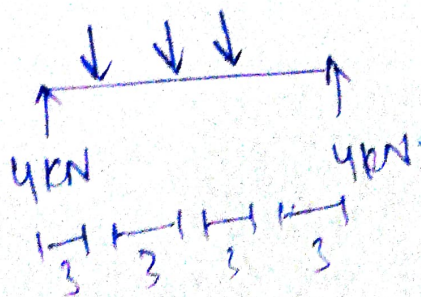 4KN 4KN
3 3 3 3